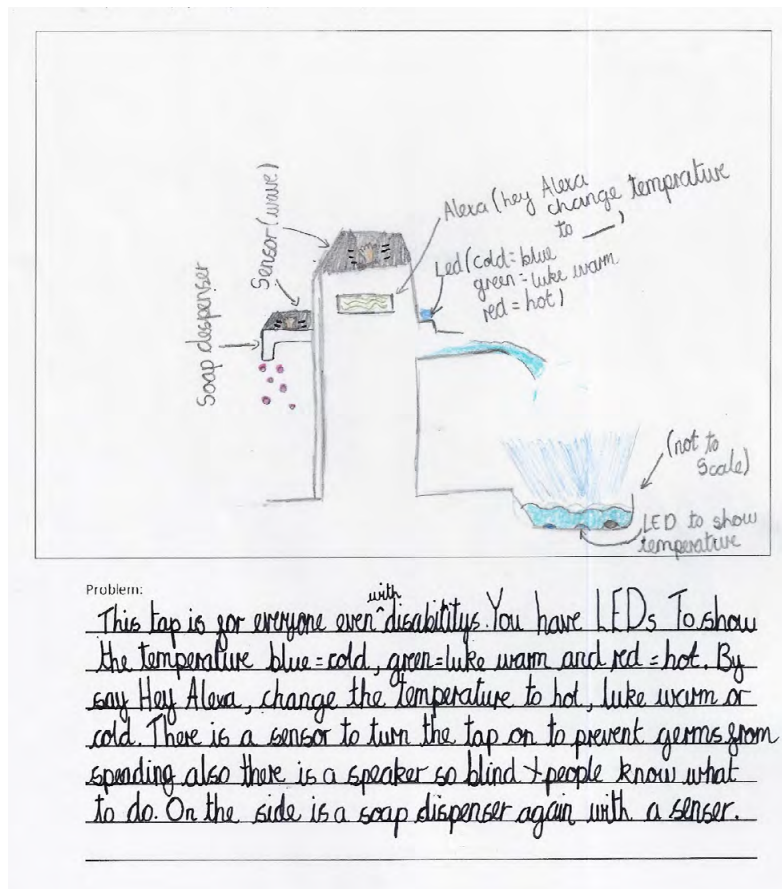 Sensor (wave)
Soap despenser
Alexa (hey Alexa
change temprature
to __)
Led (cold = blue
green = luke warm
red = hot)
(not to
scale)
LED to show
temperature
Problem:
This tap is for everyone even with disabilitys. You have LEDs To show
the temperature blue = cold, green = luke warm and red = hot. By
say Hey Alexa, change the temperature to hot, luke warm or
cold. There is a sensor to turn the tap on to prevent germs from
spending also there is a speaker so blind + people know what
to do. On the side is a soap dispenser again with a senser.